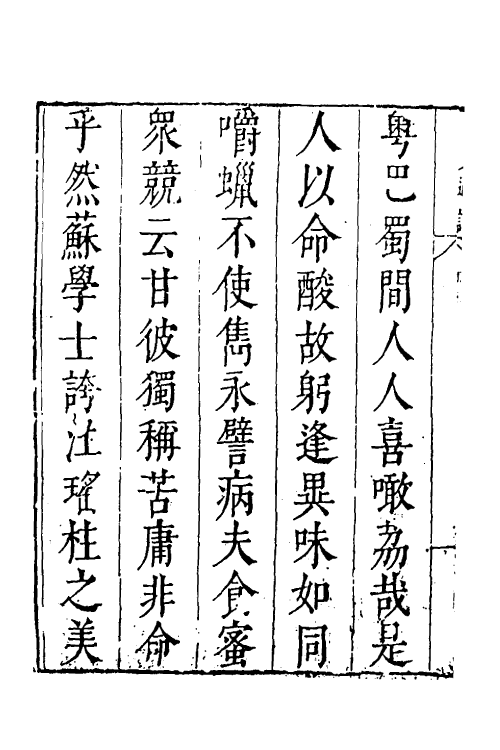 粤巴蜀間人人喜噉荔哉是
人以命酸故躬逢異味如同
嚼蠟不使雋永譬病夫食蜜
衆競云甘彼獨稱苦庸非命
乎然蘇學士誇江瑤柱之美